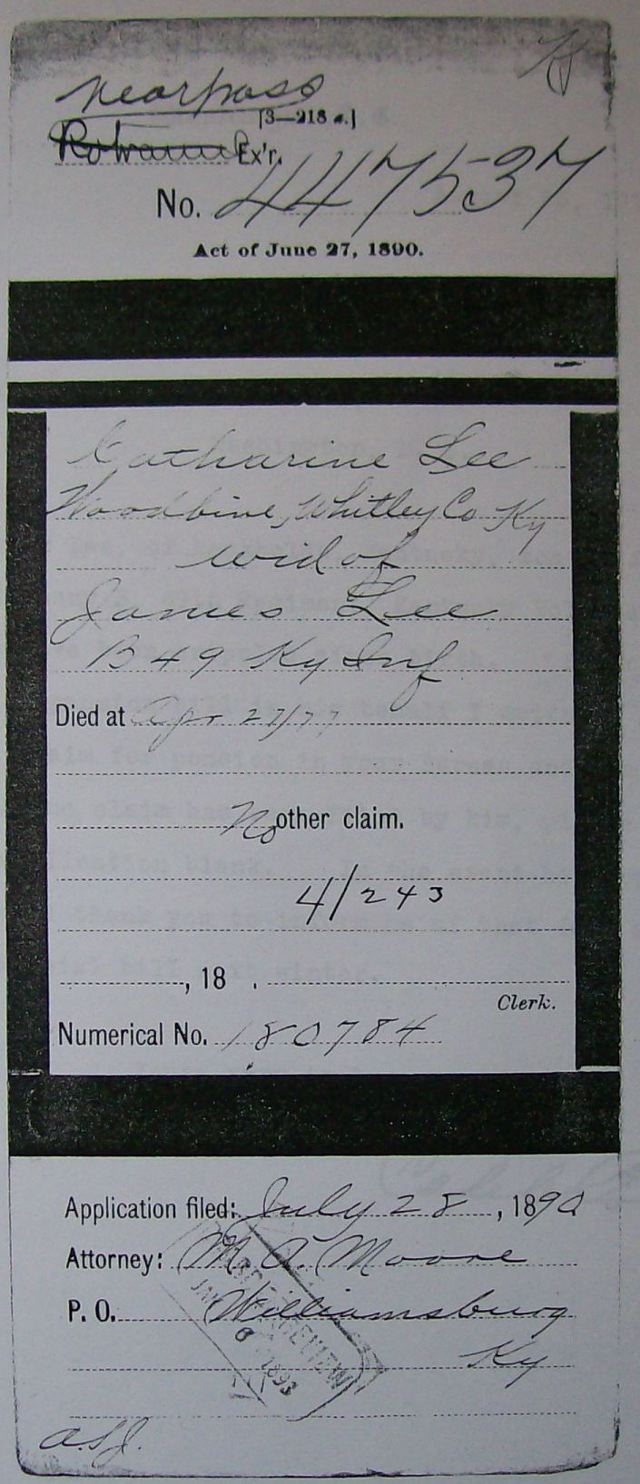 Nearpass
[3—218 a.]
Ex'r.
No. 447537
Act of June 27, 1890.
Catharine Lee
Woodbine, Whitley Co Ky
wid of
James Lee
B 49 Ky Inf
Died at Apr 27/77
No other claim.
4/243
, 18 .
Clerk.
Numerical No. 180784
Application filed: July 28, 1890
Attorney: M. A. Moore
P. O. Williamsburg
Ky
REVIEW
1893